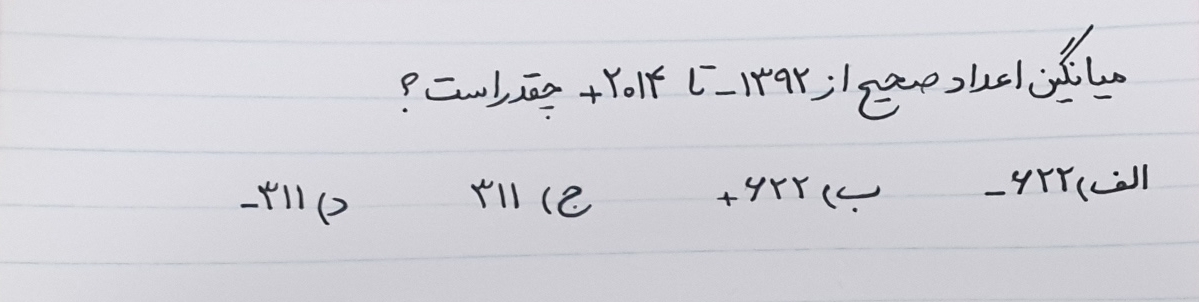 میانگین اعداد صحیح از ۱۳۹۲− تا ۲۰۱۴+ چقدر است؟
الف) ۶۲۲− ب) ۶۲۲+ ج) ۳۱۱ د) ۳۱۱−